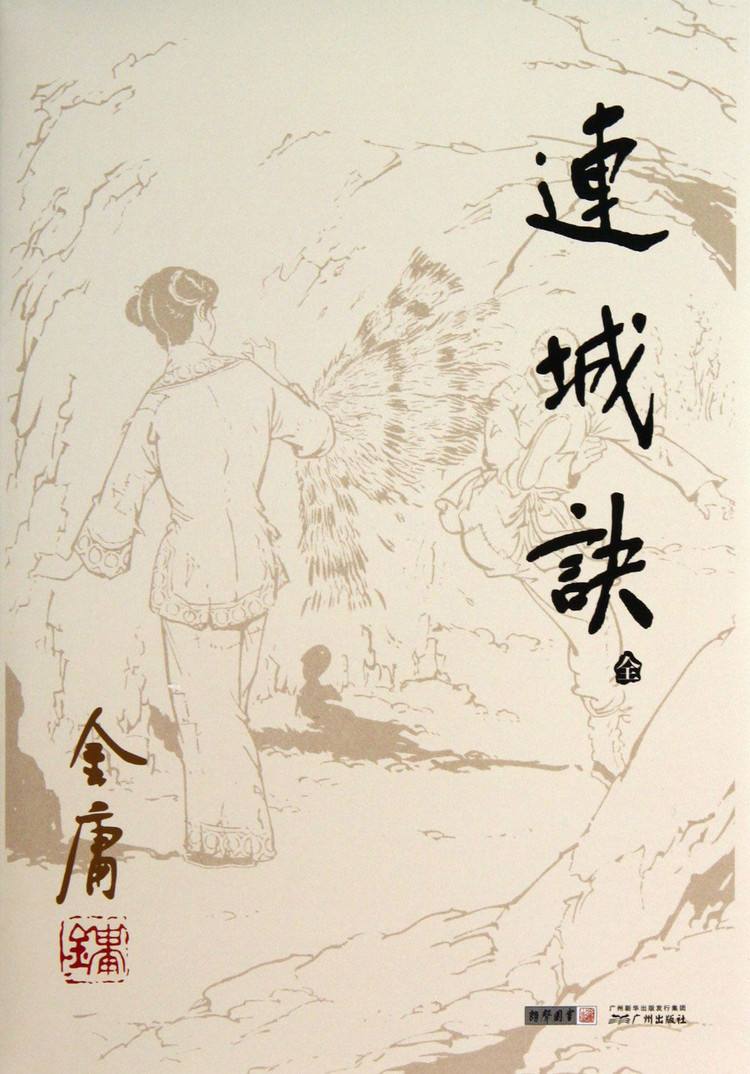 連城訣
全
金庸
金庸
朗聲图書
广州新华出版发行集团
广州出版社